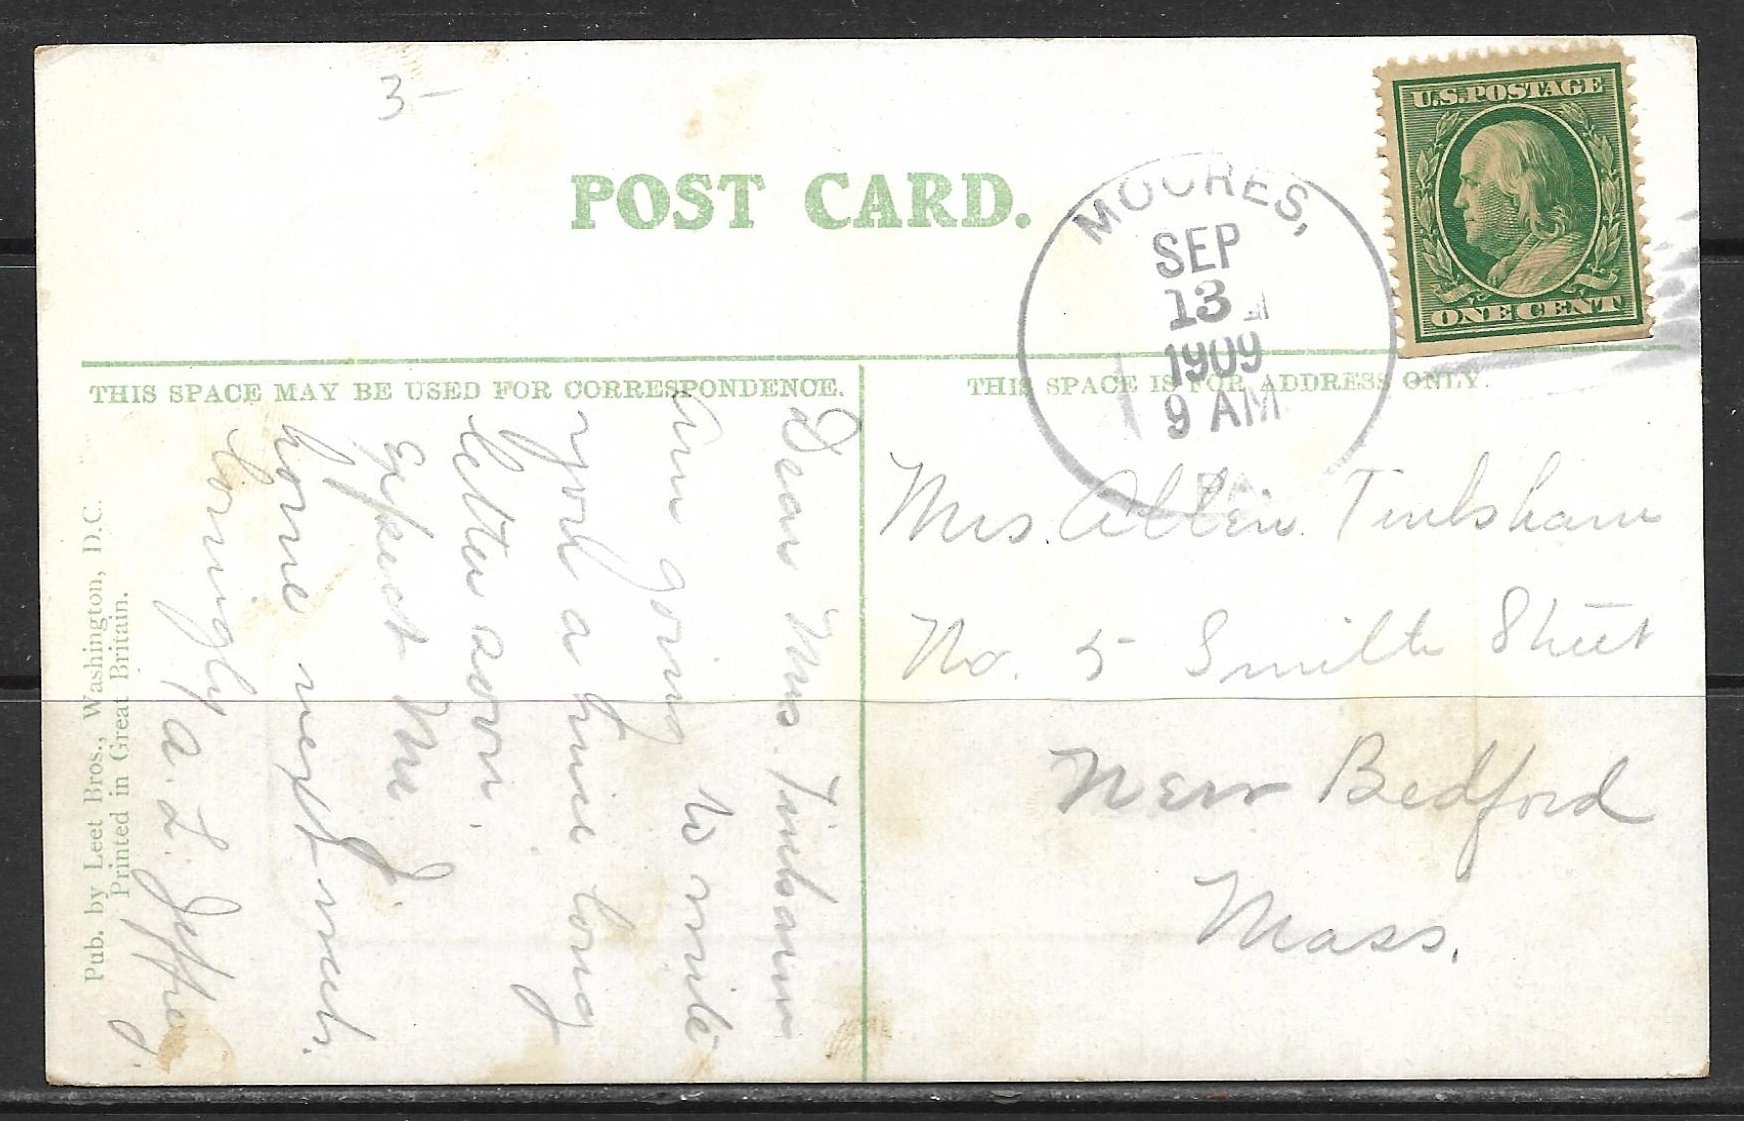 3-
U.S. POSTAGE
ONE CENT
POST CARD.
MOORES,
SEP
13
1909
9 AM
PA.
THIS SPACE MAY BE USED FOR CORRESPONDENCE.
THIS SPACE IS FOR ADDRESS ONLY.
Dear Mrs. Tinkham
Am going to write
you a nice long
letter soon.
Expect Mr. J.
home next week.
Lovingly A. L. Jeffrey
Mrs. Allen Tinkham
No. 5 Smith Street
New Bedford
Mass.
Pub. by Leet Bros., Washington, D.C.
Printed in Great Britain.